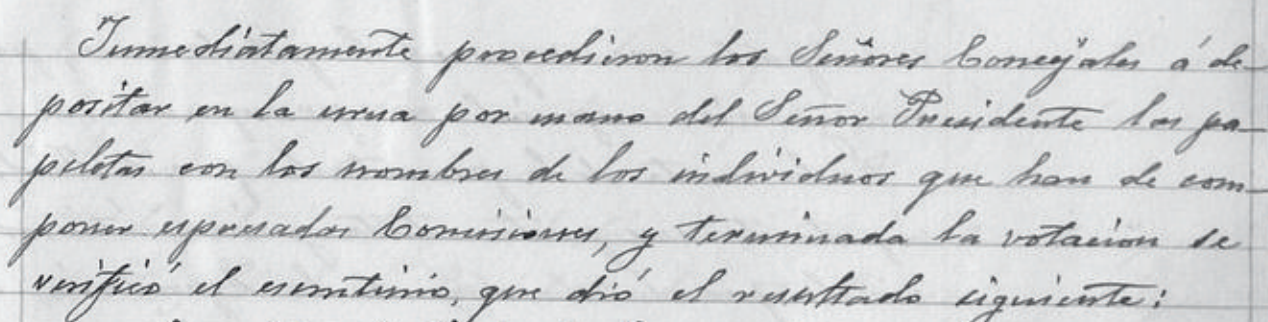 Inmediatamente procedieron los Señores Concejales á de-
positar en la urna por mano del Señor Presidente las pa-
peletas con los nombres de los individuos que han de com-
poner espresadas Comisiones, y terminada la votacion se
verificó el escrutinio, que dió el resultado siguiente: